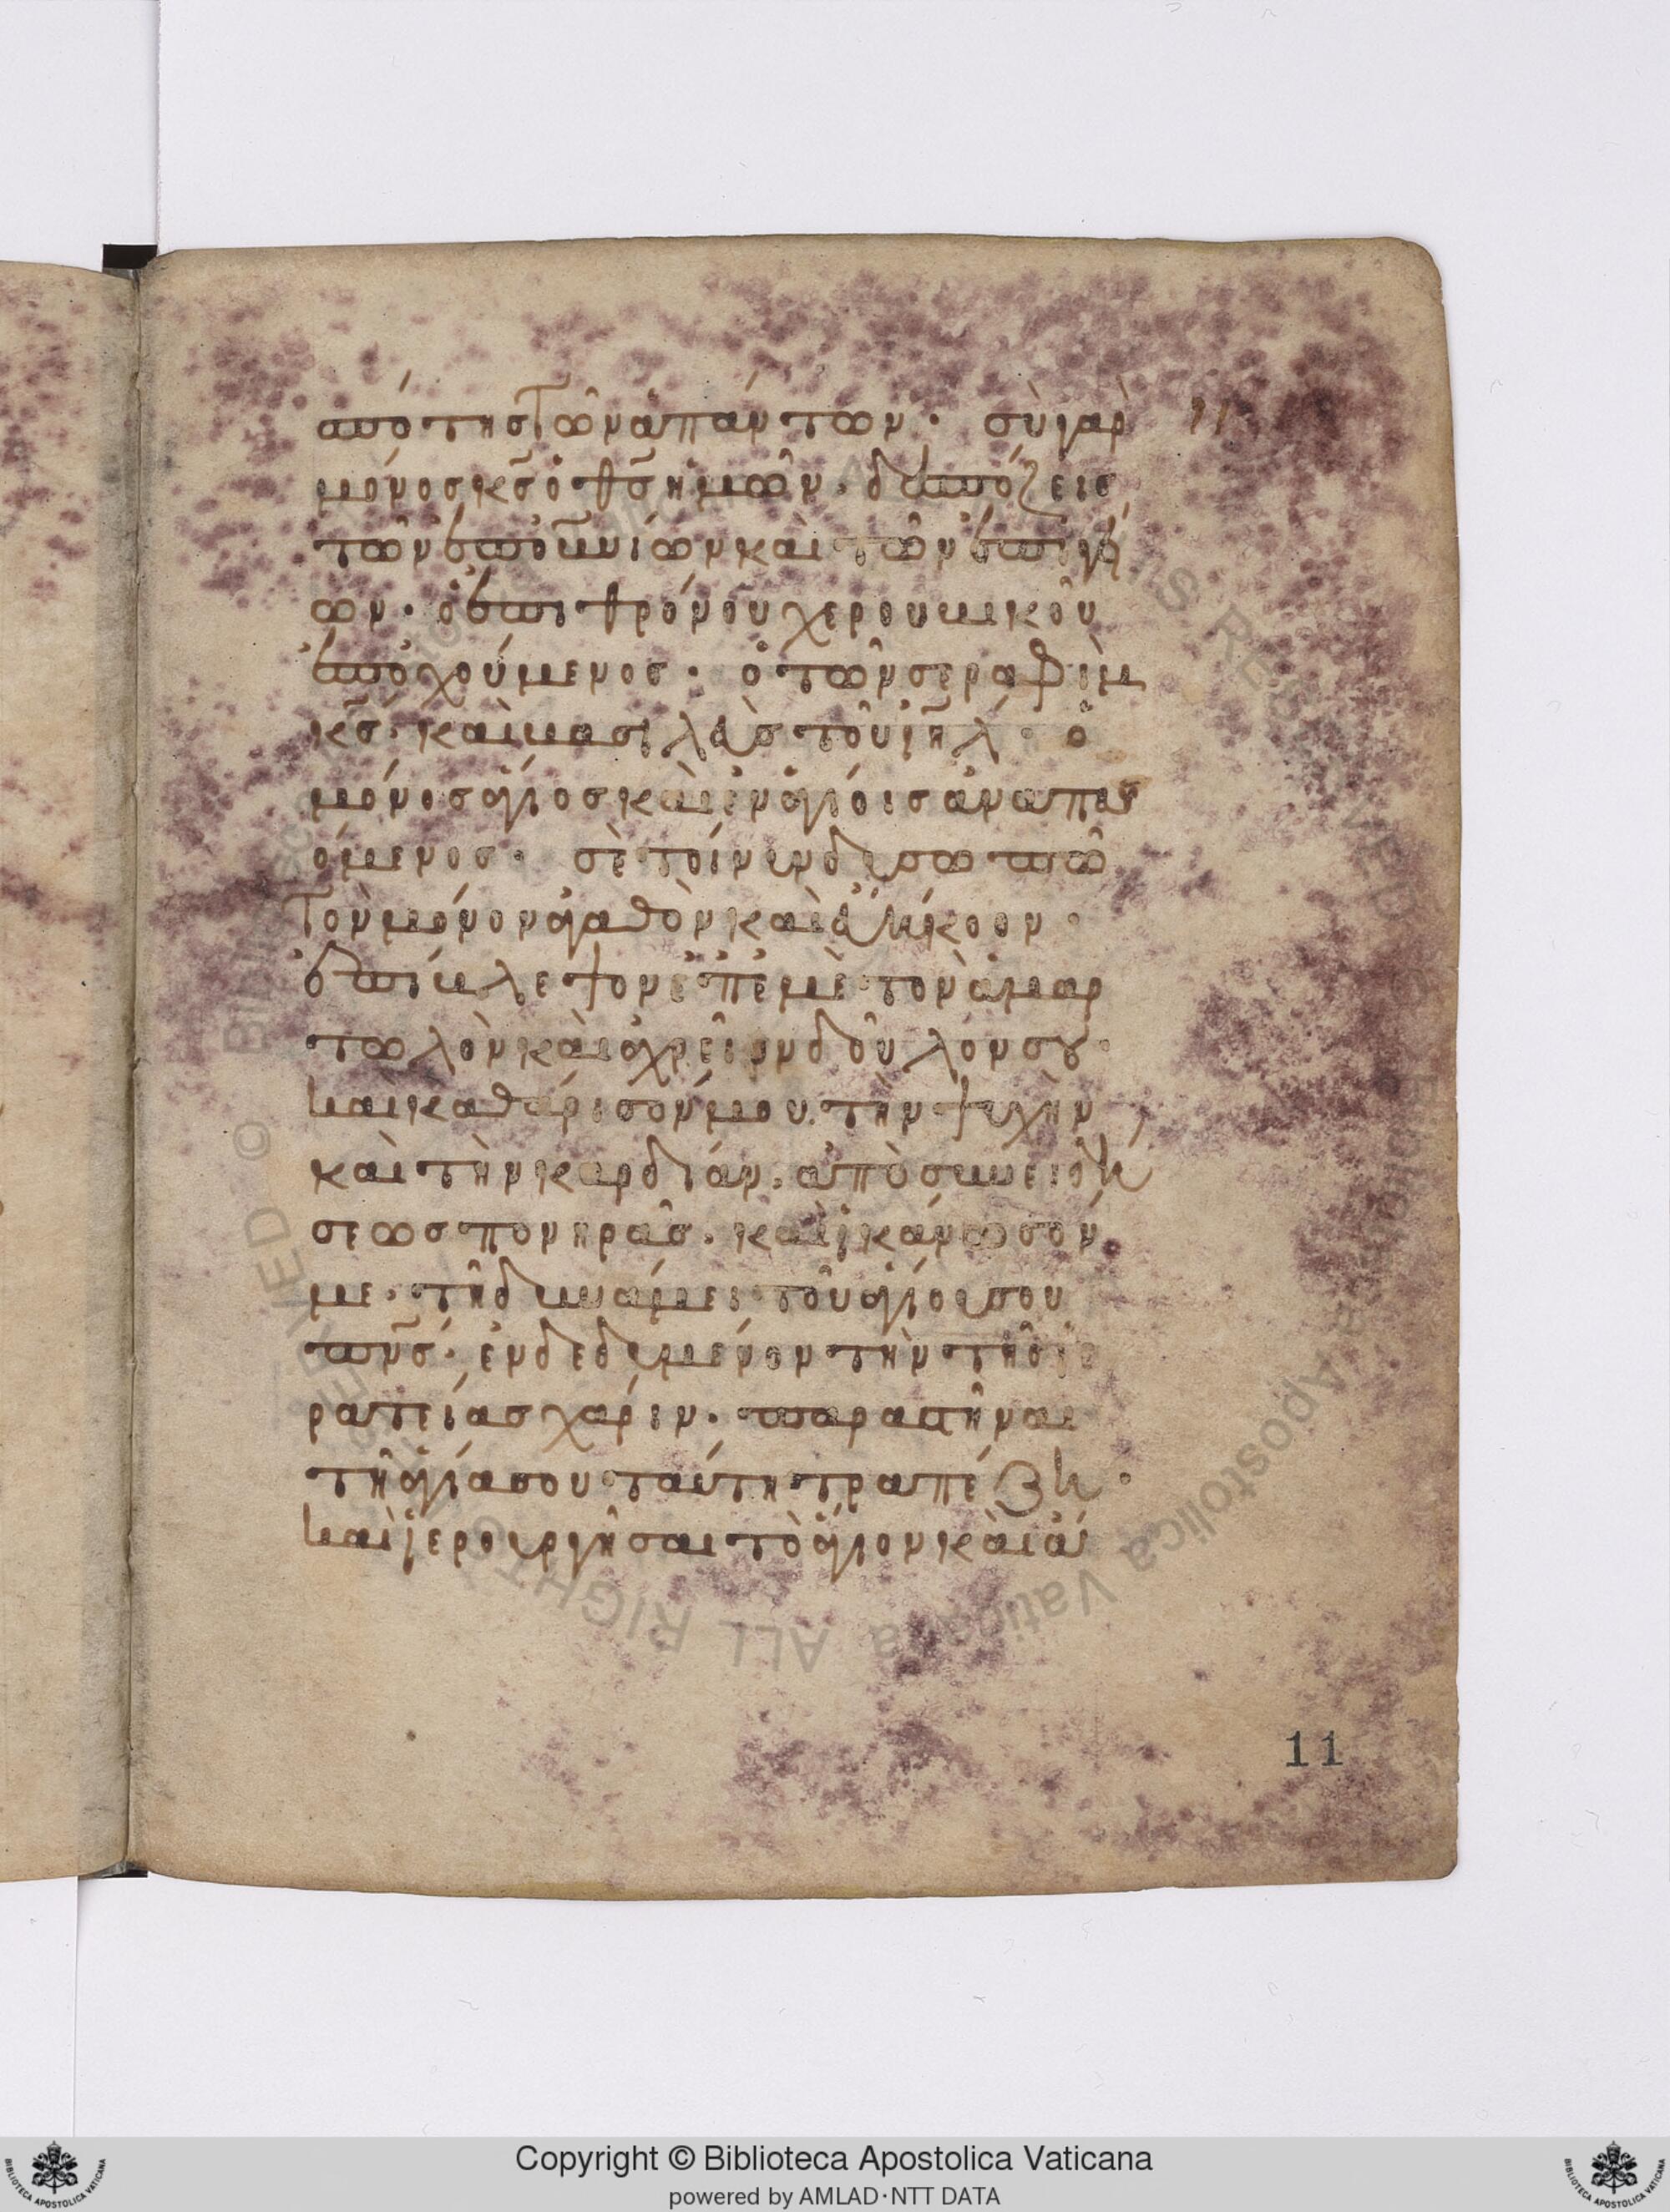 πότης τῶν ἁπάντων· σὺ γὰρ
μόνος κ̅ς̅ ὁ θ̅ς̅ ἡμῶν· δεσπόζεις
τῶν ἐπουνίων καὶ τῶν ἐπιγεί
ων· ὁ ἐπι θρόνου χερουβικοῦ
ἐποχούμενος· ὁ τῶν σεραφὶμ
κ̅ς̅· καὶ βασιλεὺς τοῦ ι̅η̅λ̅· ὁ
μόνος ἅγιος καὶ ἐν ἁγίοις ἀναπαυ
όμενος· σὲ τοίνυν δυσωπῶ
τὸν μόνον ἀγαθὸν καὶ εὐήκοον·
ἐπίβλεψον ἐπ' ἐμὲ τὸν ἁμαρ
τωλὸν καὶ ἀχρεῖον δοῦλόν σου·
καὶ καθάρισόν μου τὴν ψυχὴν
καὶ τὴν καρδίαν· ἀπὸ συνειδή
σεως πονηρᾶς· καὶ ἱκάνωσόν
με· τῇ δυνάμει τοῦ ἁγίου σου
π̅ν̅ς̅· ἐνδεδυμένον τὴν τῆς ἱε
ρατείας χάριν· παραστῆναι
τῇ ἁγίᾳ σου ταύτῃ τραπέζῃ·
καὶ ἱερουργῆσαι τὸ ἅγιον καὶ ἄχ
11
11
Copyright © Biblioteca Apostolica Vaticana
powered by AMLAD·NTT DATA